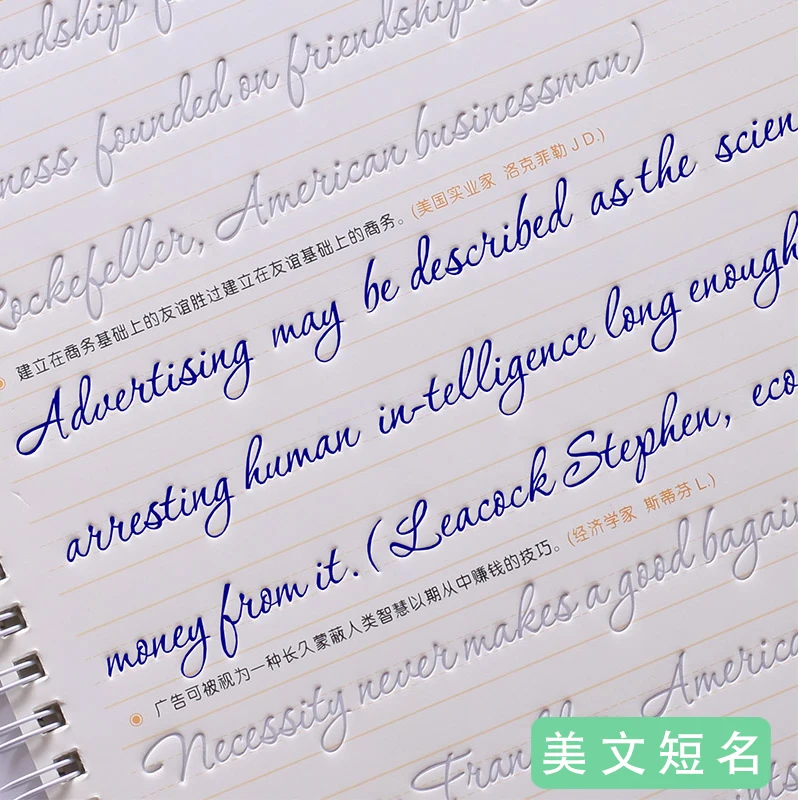 friendship
ness founded on friendship
Rockefeller, American businessman)
建立在商务基础上的友谊胜过建立在友谊基础上的商务。(美国实业家 洛克菲勒 J D.)
Advertising may be described as the scien
arresting human in-telligence long enough
money from it. (Leacock Stephen, eco
广告可被视为一种长久蒙蔽人类智慧以期从中赚钱的技巧。(经济学家 斯蒂芬 L.)
Necessity never makes a good bagain
America
美文短名